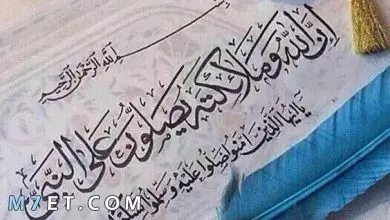 بسم الله الرحمن الرحيم
إن الله وملائكته يصلون على النبي
يا أيها الذين آمنوا صلوا عليه وسلموا تسليما
M7ET.COM